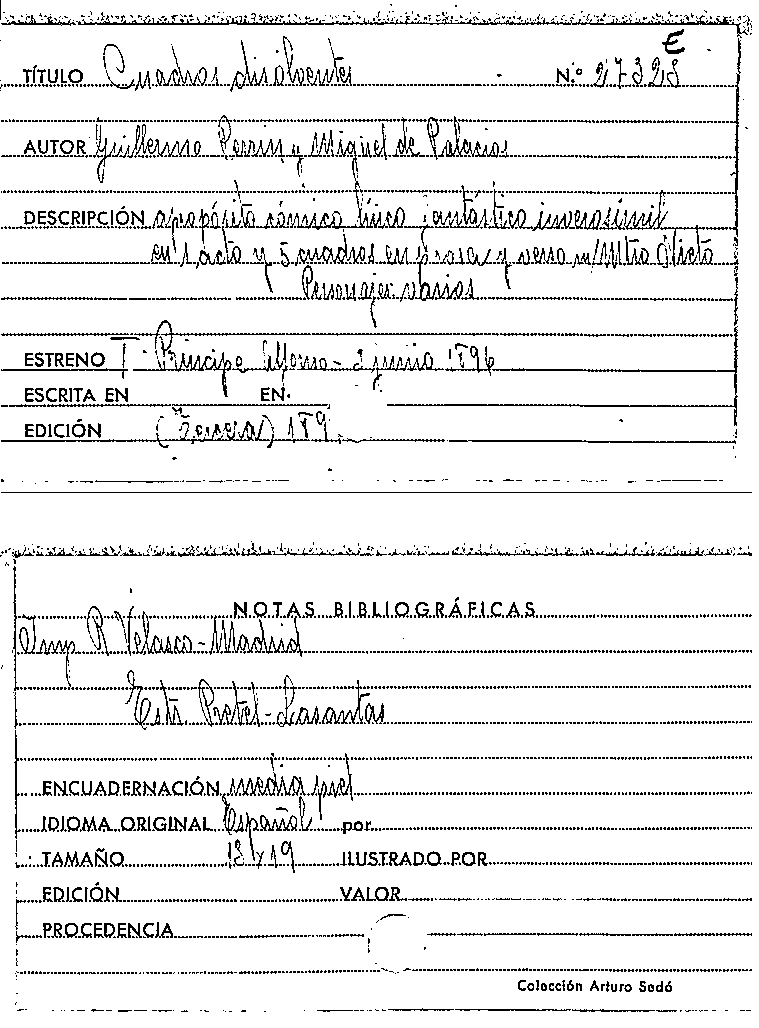 E
TÍTULO Cuadros disolventes N.º 27328
AUTOR Guillermo Perrin y Miguel de Palacios
DESCRIPCIÓN apropósito cómico lírico fantástico inverosimil
en 1 acto y 5 cuadros en prosa y verso m/Mtro Nieto
Personajes varios
ESTRENO T. Principe Alfonso - 2 junio 1896
ESCRITA EN EN
EDICIÓN (Tercera) 189
NOTAS BIBLIOGRÁFICAS
Imp R Velasco - Madrid
Estr. Pretel - Lasantas
ENCUADERNACIÓN media piel
IDIOMA ORIGINAL Español por
TAMAÑO 13x19 ILUSTRADO POR
EDICIÓN VALOR
PROCEDENCIA
Colección Arturo Sedó